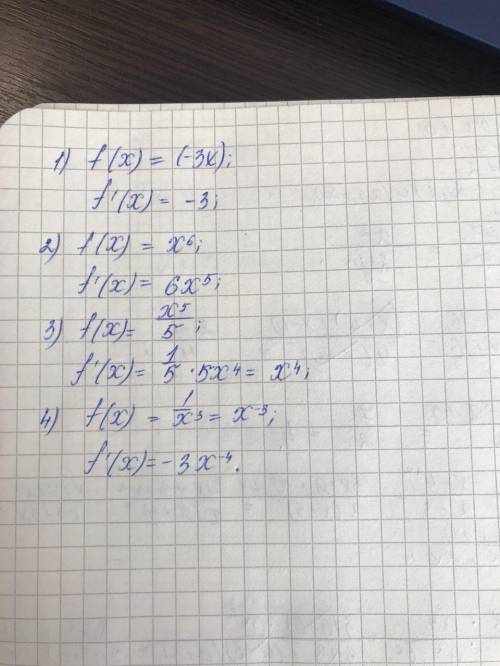 1) f(x) = (-3x);
f'(x) = -3;
2) f(x) = x⁶;
f'(x) = 6x⁵;
3) f(x) = x⁵/5;
f'(x) = 1/5 · 5x⁴ = x⁴;
4) f(x) = 1/x³ = x⁻³;
f'(x) = -3x⁻⁴.